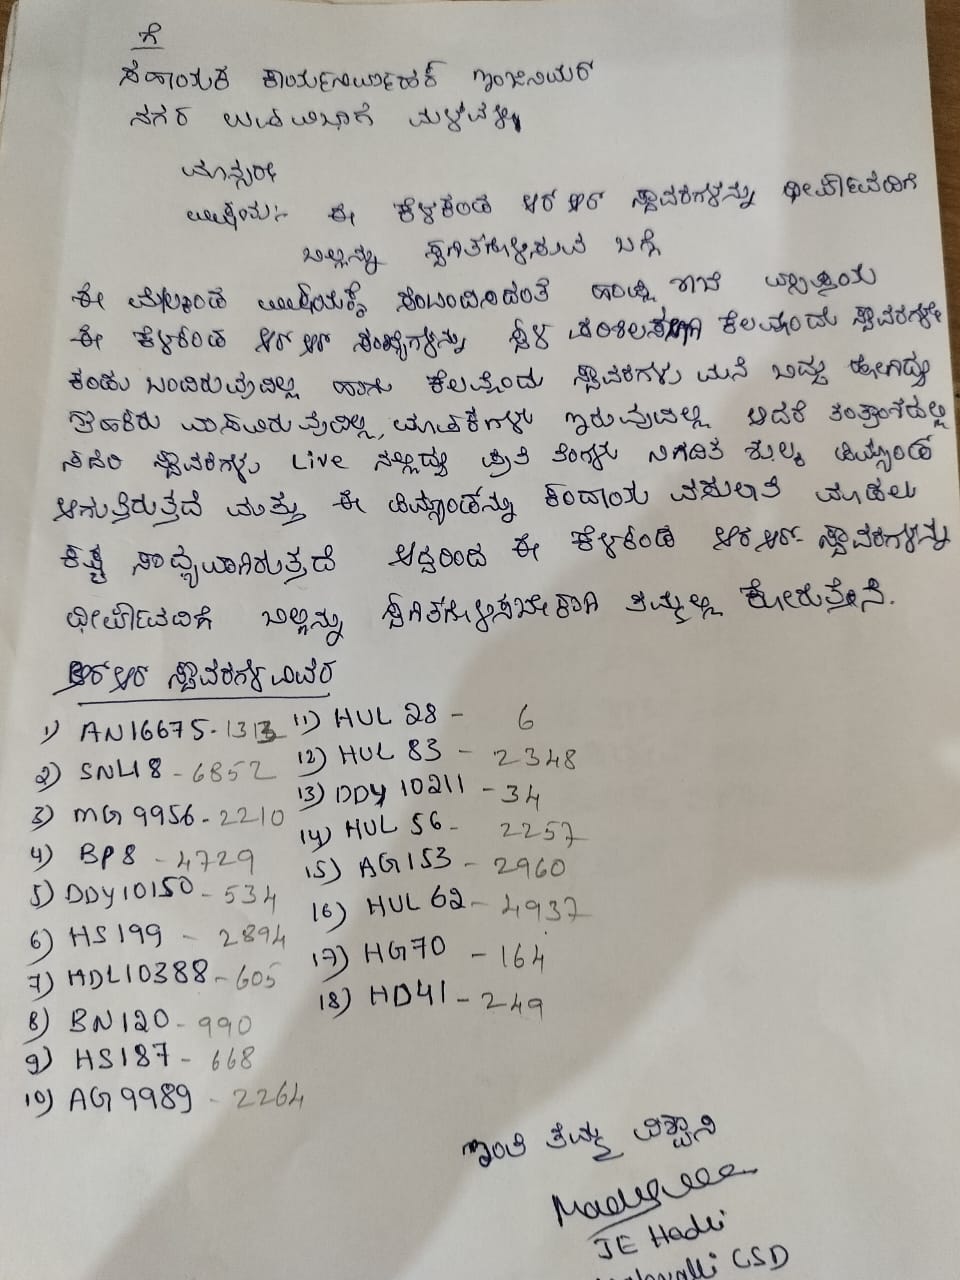 ಗೆ
ಸಹಾಯಕ ಕಾರ್ಯನಿರ್ವಾಹಕ ಇಂಜಿನಿಯರ್
ನಗರ ಉಪ ವಿಭಾಗ ಮಳವಳ್ಳಿ
ಮಾನ್ಯರೇ
ವಿಷಯ:- ಈ ಕೆಳಕಂಡ ಆರ್ ಆರ್ ಸ್ಥಾವರಗಳನ್ನು ಧೀರ್ಘಾವದಿಗೆ
ಬಿಲ್ಲನ್ನು ಸ್ಥಗಿತಗೊಳಿಸುವ ಬಗ್ಗೆ
ಈ ಮೇಲ್ಕಂಡ ವಿಷಯಕ್ಕೆ ಸಂಬಂದಿಸಿದಂತೆ ಹಾಡ್ಲಿ ಶಾಖೆ ವ್ಯಾಪ್ತಿಯ
ಈ ಕೆಳಕಂಡ ಆರ್ ಆರ್ ಸಂಖ್ಯೆಗಳನ್ನು ಸ್ಥಳ ಪರಿಶೀಲಿಸಲಾಗಿ ಕೆಲವೊಂದು ಸ್ಥಾವರಗಳೇ
ಕಂಡು ಬಂದಿರುವುದಿಲ್ಲ ಹಾಗು ಕೆಲವೊಂದು ಸ್ಥಾವರಗಳು ಮನೆ ಬಿದ್ದು ಹೋಗಿದ್ದು
ಗ್ರಾಹಕರು ವಾಸವಿರುವುದಿಲ್ಲ, ಮಾಪಕಗಳು ಇರುವುದಿಲ್ಲ ಆದರೆ ತಂತ್ರಾಂಶದಲ್ಲಿ
ಸದರಿ ಸ್ಥಾವರಗಳು Live ನಲ್ಲಿದ್ದು ಪ್ರತಿ ತಿಂಗಳು ನಿಗದಿತ ಶುಲ್ಕ ಡಿಮ್ಯಾಂಡ್
ಆಗುತ್ತಿರುತ್ತದೆ ಮತ್ತು ಈ ಡಿಮ್ಯಾಂಡನ್ನು ಕಂದಾಯ ವಸುಲಾತಿ ಮಾಡಲು
ಕಷ್ಟ ಸಾಧ್ಯವಾಗಿರುತ್ತದೆ ಆದ್ದರಿಂದ ಈ ಕೆಳಕಂಡ ಆರ್ ಆರ್ ಸ್ಥಾವರಗಳನ್ನು
ಧೀರ್ಘಾವದಿಗೆ ಬಿಲ್ಲನ್ನು ಸ್ಥಗಿತಗೊಳಿಸಬೇಕಾಗಿ ತಮ್ಮಲ್ಲಿ ಕೋರುತ್ತೇನೆ.
ಆರ್ ಆರ್ ಸ್ಥಾವರಗಳ ವಿವರ
1) AN16675-1313
2) SNL18-6852
3) MG9956-2210
4) BP8-4729
5) DDY10150-534
6) HS199-2894
7) HDL10388-605
8) BN120-990
9) HS187-668
10) AG9989-2264
11) HUL 28- 6
12) HUL 83-2348
13) DDY 10211-34
14) HUL 56-2257
15) AG153-2960
16) HUL 62-4937
17) HG70-164
18) HD41-249
ಇಂತಿ ತಮ್ಮ ವಿಶ್ವಾಸಿ
JE Hadli
CSD